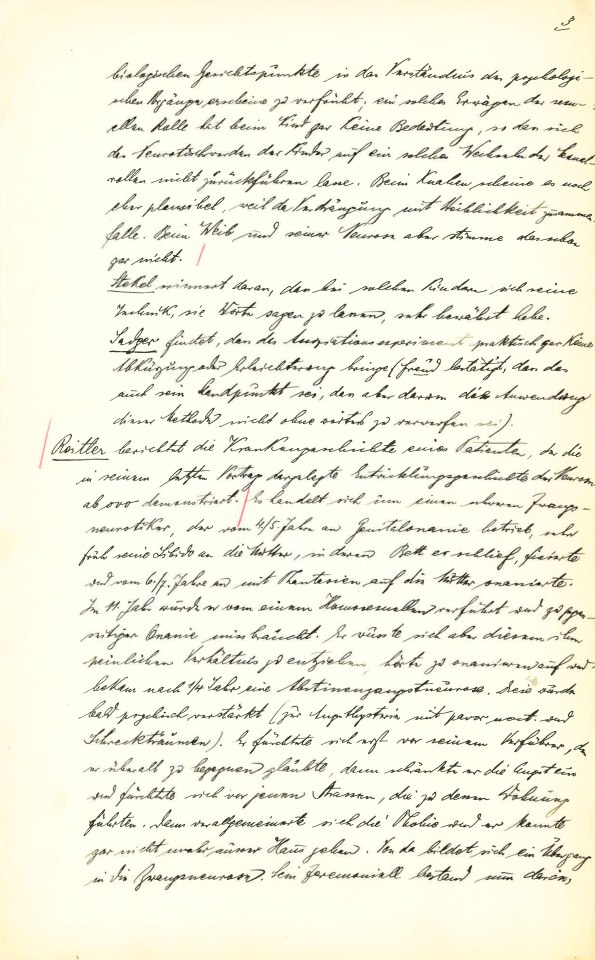 3
biologischen Gesichtspunkte in das Verständnis der psychologi-
schen Vorgänge erscheine zu verfrüht; ein solches Erwägen der sexu-
ellen Rolle hat beim Kind gar keine Bedeutung, so dass sich
das Neurotischwerden der Kinder auf ein solches Wechseln der Sexual-
rollen nicht zurückführen lasse. Beim Knaben scheine es noch
eher plausibel, weil da Verdrängung mit Weiblichkeit zusammen-
falle. Beim Weib und seiner Neurose aber stimme das schon
gar nicht.
Stekel erinnert daran, dass bei solchen Kindern sich seine
Technik, sie Worte sagen zu lassen, sehr bewährt habe.
Sadger findet, dass das Assoziationsexperiment praktisch gar keine
Abkürzung oder Erleichterung bringe (Freud bestätigt, dass das
auch sein Standpunkt sei, dass aber darum die Anwendung
dieser Methode nicht ohne weiters zu verwerfen sei).
Reitler berichtet die Krankengeschichte eines Patienten, der die
in seinem letzten Vortrag dargelegte Entwicklungsgeschichte der Neurosen
ab ovo demonstriert. Es handelt sich um einen schweren Zwangs-
neurotiker, der vom 4/5. Jahre an Genitalonanie betrieb, sehr
früh seine Libido an die Mutter, in deren Bett er schlief, fixierte
und vom 6./7. Jahre an mit Phantasien auf die Mutter onanierte.
Im 11. Jahr wurde er von einem Homosexuellen verführt und zu gegen-
seitiger Onanie missbraucht. Er wusste sich aber diesem ihm
peinlichen Verhältnis zu entziehen, hörte zu onanieren auf und
bekam nach 1/4 Jahr eine Abstinenzangstneurose. Diese wurde
bald psychisch verstärkt (zur Angsthysterie mit pavor noct. und
Schreckträumen). Er fürchtete sich erst vor seinem Verführer, dem
er überall zu begegnen glaubte, dann schränkte er die Angst ein
und fürchtete sich vor jenen Strassen, die zu dessen Wohnung
führten. Dann verallgemeinerte sich die Phobie und er konnte
gar nicht mehr ausser Haus gehen. Von da bildet sich ein Übergang
in die Zwangsneurose. Sein Zeremoniell bestand nun darin,